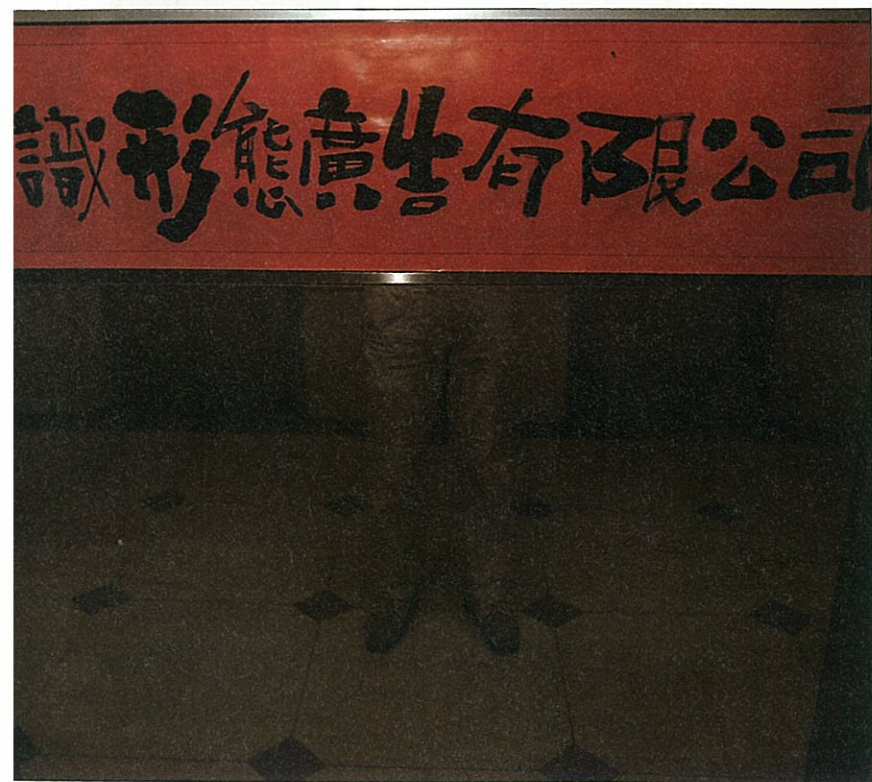 識形態廣告有限公司